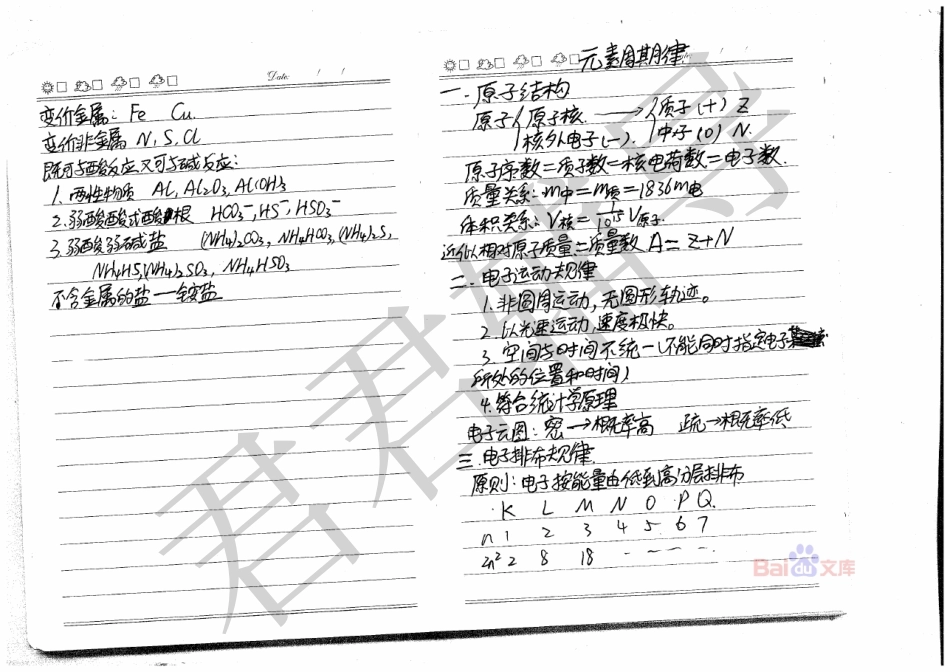 Date: / /
变价金属: Fe Cu.
变价非金属 N, S, Cl
既可与酸反应又可与碱反应:
1. 两性物质 Al, Al2O3, Al(OH)3
2. 弱酸酸式酸根 HCO3⁻, HS⁻, HSO3⁻
3. 弱酸弱碱盐 (NH4)2CO3, NH4HCO3, (NH4)2S,
NH4HS, (NH4)2SO3, NH4HSO3
不含金属的盐—铵盐
元素周期律
一. 原子结构
原子{原子核. → {质子(+) Z
核外电子(-). 中子(0) N.
原子序数=质子数=核电荷数=电子数.
质量关系: m中=m质=1836m电
体积关系: V核=1/10^15 V原子.
近似相对原子质量=质量数 A=Z+N
二. 电子运动规律
1. 非圆周运动, 无圆形轨迹。
2. 以光速运动, 速度极快。
3. 空间与时间不统一(不能同时指定电子
所处的位置和时间)
4. 符合统计学原理
电子云图: 密→概率高 疏→概率低
三. 电子排布规律.
原则: 电子按能量由低到高分层排布
K L M N O P Q.
n 1 2 3 4 5 6 7
2n² 2 8 18 - - - -
Baidu文库
君君辅导